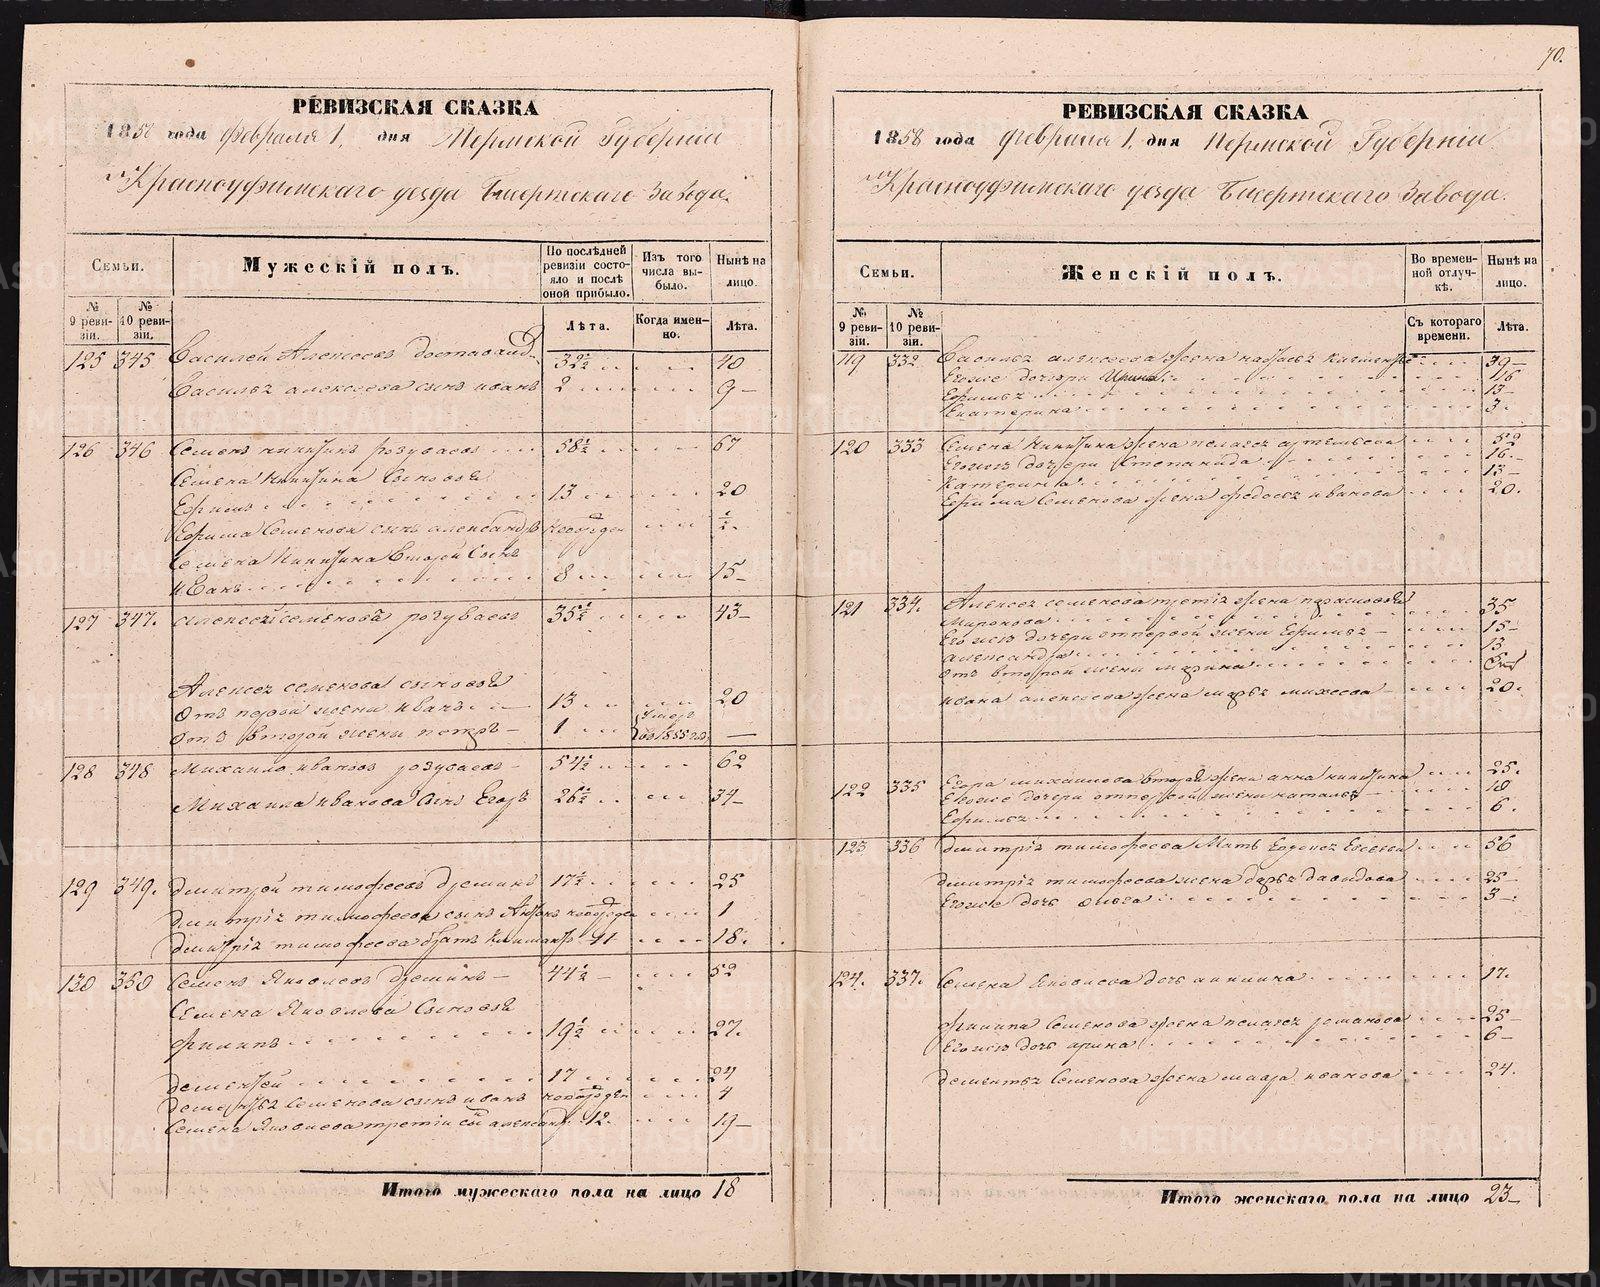 70.
РЕВИЗСКАЯ СКАЗКА
1858 года Февраля 1, дня Пермской Губерніи
Красноуфимскаго уезда Бисертскаго Завода.
Семьи.
Мужескій полъ.
По послѣдней ревизіи состояло и послѣ оной прибыло.
Изъ того числа выбыло.
Нынѣ на лицо.
№ 9 ревизіи.
№ 10 ревизіи.
Лѣта.
Когда именно.
Лѣта.
125 345 Василей Алексеевъ 32½ 40
Васильа алексеева сынъ иванъ 2 9
126 346 Семенъ никитинъ розуваевъ 58½ 67
Семена Никитина Сыновья
Ефимъ 13 20
Ефима Семенова сынъ александръ новорожден ½
Семена Никитина Второй Сынъ
иванъ 8 15
127 347. алексей семеновъ розуваевъ 35½ 43
Алексея семенова сыновья
Отъ первой жены иванъ 13 20
Отъ второй жены петръ 1 умеръ въ 1855 —
128 348 Михайло ивановъ розуваевъ 54½ 62
Михаила иванова сынъ Егоръ 26½ 34
129 349. дмитрей тимофеевъ 17½ 25
дмитрія тимофеева сынъ новорожден 1
дмитрія тимофеева братъ 11 18
130 350 Семенъ Яковлевъ 44½ 52
Семена Яковлева Сыновья
Филипъ 19½ 27.
дементей 17 24
дементья Семенова сынъ иванъ новорожден 4
Семена Яковлева третій сынъ александр 12. 19
Итого мужескаго пола на лицо 18
РЕВИЗСКАЯ СКАЗКА
1858 года Февраля 1, дня Пермской Губерніи
Красноуфимскаго уезда Бисертскаго Завода.
Семьи.
Женскій полъ.
Во временной отлучкѣ.
Нынѣ на лицо.
№ 9 ревизіи.
№ 10 ревизіи.
Съ котораго времени.
Лѣта.
119 332 Васильа алексеева жена 39
Егоже дочери Ирина 16
Ефимья 13
Екатерина 3.
120 333 Семена Никитина жена пелагея артемьева 52
Егоже дочери Степанида 16.
Катерина 13
Ефима Семенова жена федосья иванова 20.
121 334. Алексея семенова третія жена
Миронова 35
Егоже дочери отпервой жены Ефимья 15
александра 13
Отъ второй жены
ивана алексеева жена марья михеева 20.
122 335 Егора михаилова вторая жена анна никитина 25.
Егоже дочери отпервой жены наталья 10
Ефимья 6.
123 336 дмитрія тимофеева Мать 56
дмитрія тимофеева жена дарья давыдова 25
Егоже дочь 3
124. 337. Семена Яковлева дочь 17.
Филипа Семенова жена пелагея романова 25
Егоже дочь ирина 6
дементья Семенова жена иванова 24.
Итого женскаго пола на лицо 23
METRIKI.GASO-URAL.RU